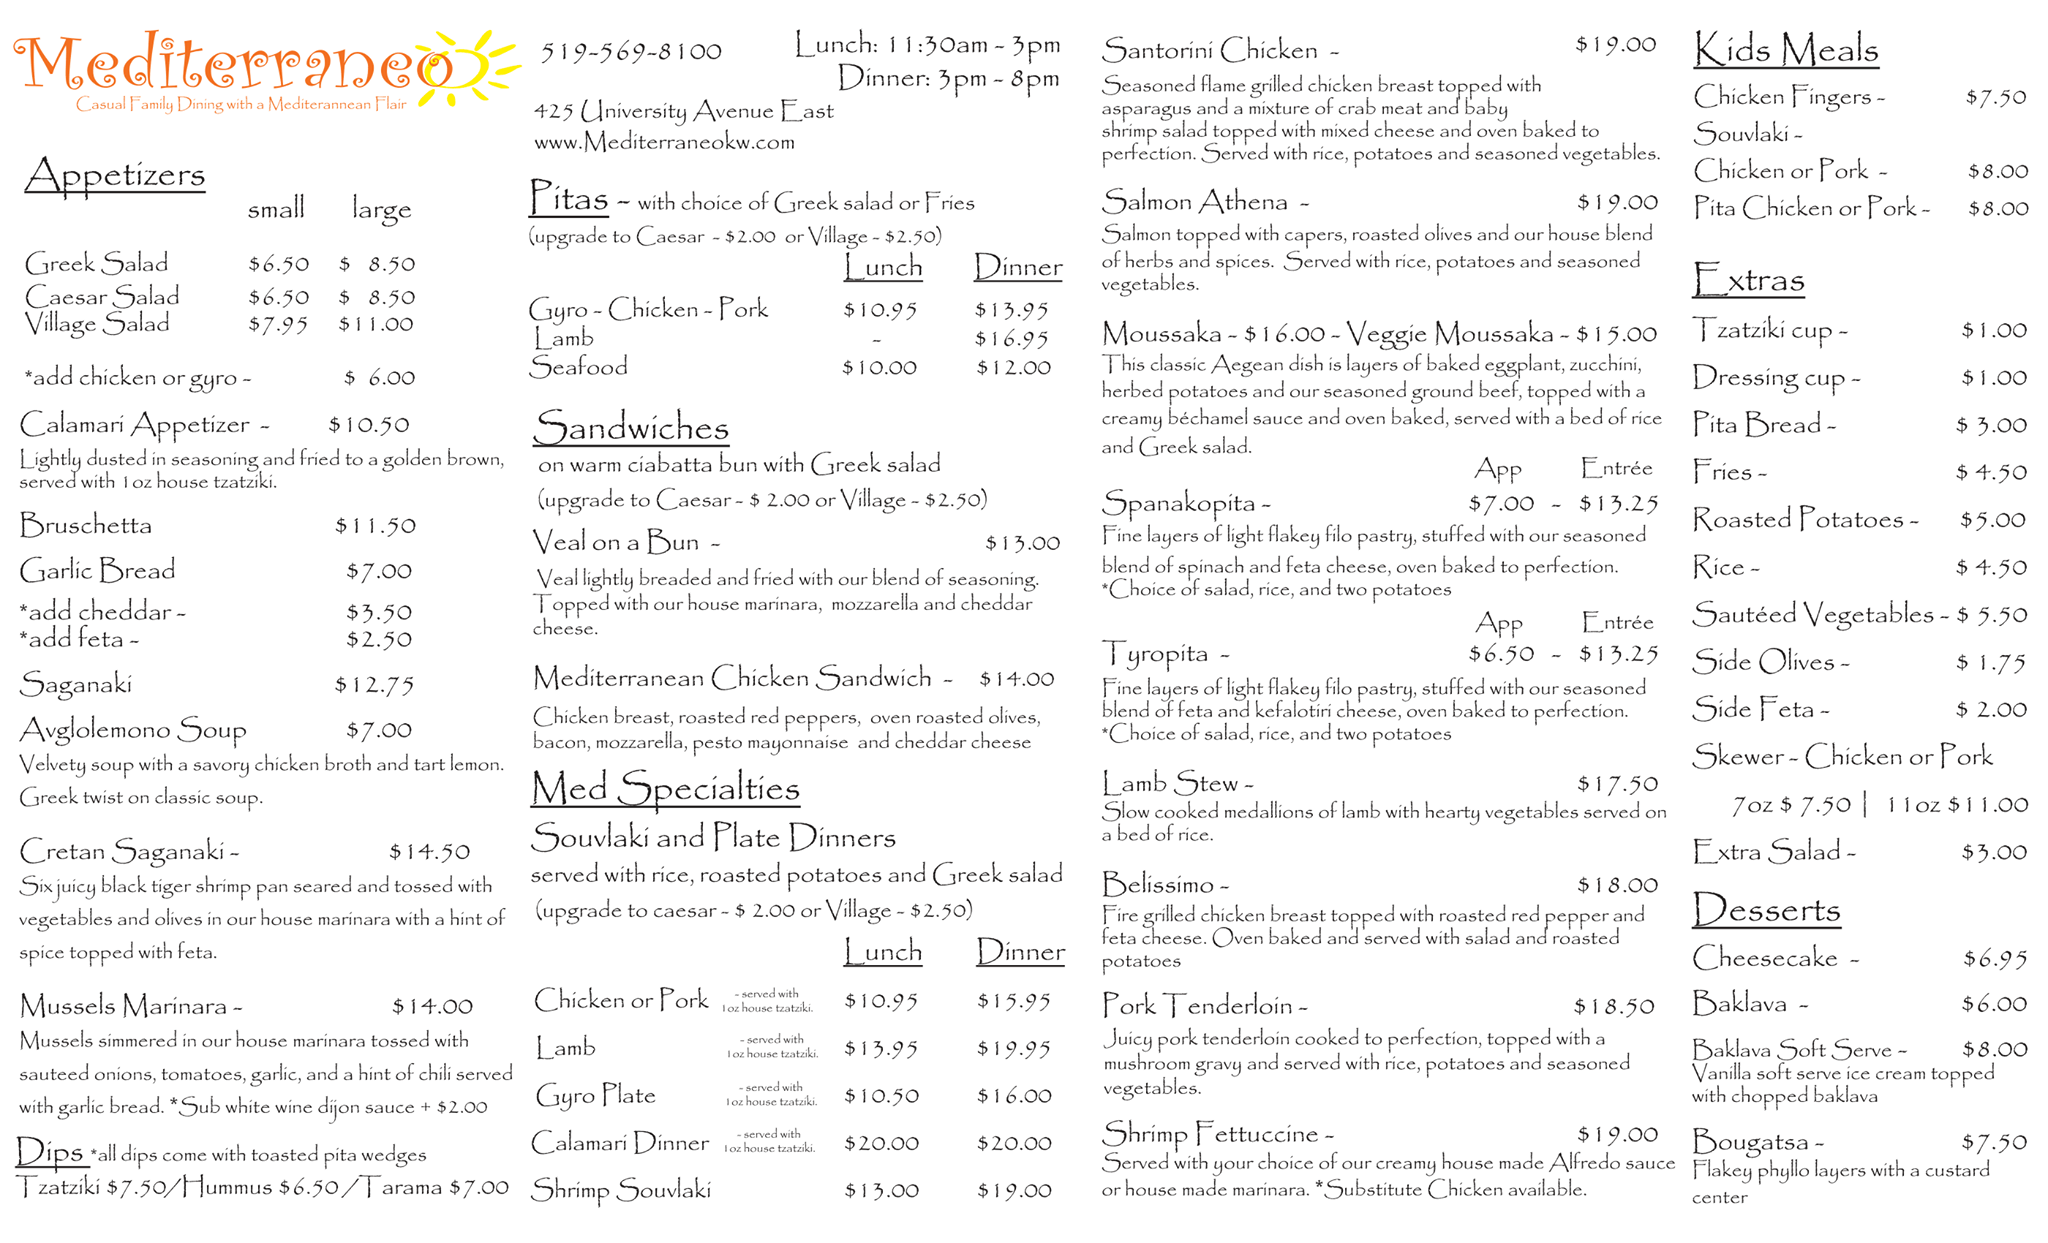 Mediterraneo
Casual Family Dining with a Mediterannean Flair
Appetizers
small large
Greek Salad $6.50 $ 8.50
Caesar Salad $6.50 $ 8.50
Village Salad $7.95 $11.00
*add chicken or gyro - $ 6.00
Calamari Appetizer - $10.50
Lightly dusted in seasoning and fried to a golden brown,
served with 1oz house tzatziki.
Bruschetta $11.50
Garlic Bread $7.00
*add cheddar - $3.50
*add feta - $2.50
Saganaki $12.75
Avglolemono Soup $7.00
Velvety soup with a savory chicken broth and tart lemon.
Greek twist on classic soup.
Cretan Saganaki - $14.50
Six juicy black tiger shrimp pan seared and tossed with
vegetables and olives in our house marinara with a hint of
spice topped with feta.
Mussels Marinara - $14.00
Mussels simmered in our house marinara tossed with
sauteed onions, tomatoes, garlic, and a hint of chili served
with garlic bread. *Sub white wine dijon sauce + $2.00
Dips *all dips come with toasted pita wedges
Tzatziki $7.50/Hummus $6.50/Tarama $7.00
519-569-8100 Lunch: 11:30am - 3pm
Dinner: 3pm - 8pm
425 University Avenue East
www.Mediterraneokw.com
Pitas - with choice of Greek salad or Fries
(upgrade to Caesar - $2.00 or Village - $2.50)
Lunch Dinner
Gyro - Chicken - Pork $10.95 $13.95
Lamb - $16.95
Seafood $10.00 $12.00
Sandwiches
on warm ciabatta bun with Greek salad
(upgrade to Caesar - $ 2.00 or Village - $2.50)
Veal on a Bun - $13.00
Veal lightly breaded and fried with our blend of seasoning.
Topped with our house marinara, mozzarella and cheddar
cheese.
Mediterranean Chicken Sandwich - $14.00
Chicken breast, roasted red peppers, oven roasted olives,
bacon, mozzarella, pesto mayonnaise and cheddar cheese
Med Specialties
Souvlaki and Plate Dinners
served with rice, roasted potatoes and Greek salad
(upgrade to caesar - $ 2.00 or Village - $2.50)
Lunch Dinner
Chicken or Pork - served with 1oz house tzatziki. $10.95 $15.95
Lamb - served with 1oz house tzatziki. $13.95 $19.95
Gyro Plate - served with 1oz house tzatziki. $10.50 $16.00
Calamari Dinner - served with 1oz house tzatziki. $20.00 $20.00
Shrimp Souvlaki $13.00 $19.00
Santorini Chicken - $19.00
Seasoned flame grilled chicken breast topped with
asparagus and a mixture of crab meat and baby
shrimp salad topped with mixed cheese and oven baked to
perfection. Served with rice, potatoes and seasoned vegetables.
Salmon Athena - $19.00
Salmon topped with capers, roasted olives and our house blend
of herbs and spices. Served with rice, potatoes and seasoned
vegetables.
Moussaka - $16.00 - Veggie Moussaka - $15.00
This classic Aegean dish is layers of baked eggplant, zucchini,
herbed potatoes and our seasoned ground beef, topped with a
creamy béchamel sauce and oven baked, served with a bed of rice
and Greek salad.
App Entrée
Spanakopita - $7.00 - $13.25
Fine layers of light flakey filo pastry, stuffed with our seasoned
blend of spinach and feta cheese, oven baked to perfection.
*Choice of salad, rice, and two potatoes
App Entrée
Tyropita - $6.50 - $13.25
Fine layers of light flakey filo pastry, stuffed with our seasoned
blend of feta and kefalotiri cheese, oven baked to perfection.
*Choice of salad, rice, and two potatoes
Lamb Stew - $17.50
Slow cooked medallions of lamb with hearty vegetables served on
a bed of rice.
Belissimo - $18.00
Fire grilled chicken breast topped with roasted red pepper and
feta cheese. Oven baked and served with salad and roasted
potatoes
Pork Tenderloin - $18.50
Juicy pork tenderloin cooked to perfection, topped with a
mushroom gravy and served with rice, potatoes and seasoned
vegetables.
Shrimp Fettuccine - $19.00
Served with your choice of our creamy house made Alfredo sauce
or house made marinara. *Substitute Chicken available.
Kids Meals
Chicken Fingers - $7.50
Souvlaki -
Chicken or Pork - $8.00
Pita Chicken or Pork - $8.00
Extras
Tzatziki cup - $1.00
Dressing cup - $1.00
Pita Bread - $ 3.00
Fries - $ 4.50
Roasted Potatoes - $5.00
Rice - $ 4.50
Sautéed Vegetables - $ 5.50
Side Olives - $ 1.75
Side Feta - $ 2.00
Skewer - Chicken or Pork
7oz $ 7.50 | 11oz $11.00
Extra Salad - $3.00
Desserts
Cheesecake - $6.95
Baklava - $6.00
Baklava Soft Serve - $8.00
Vanilla soft serve ice cream topped
with chopped baklava
Bougatsa - $7.50
Flakey phyllo layers with a custard
center